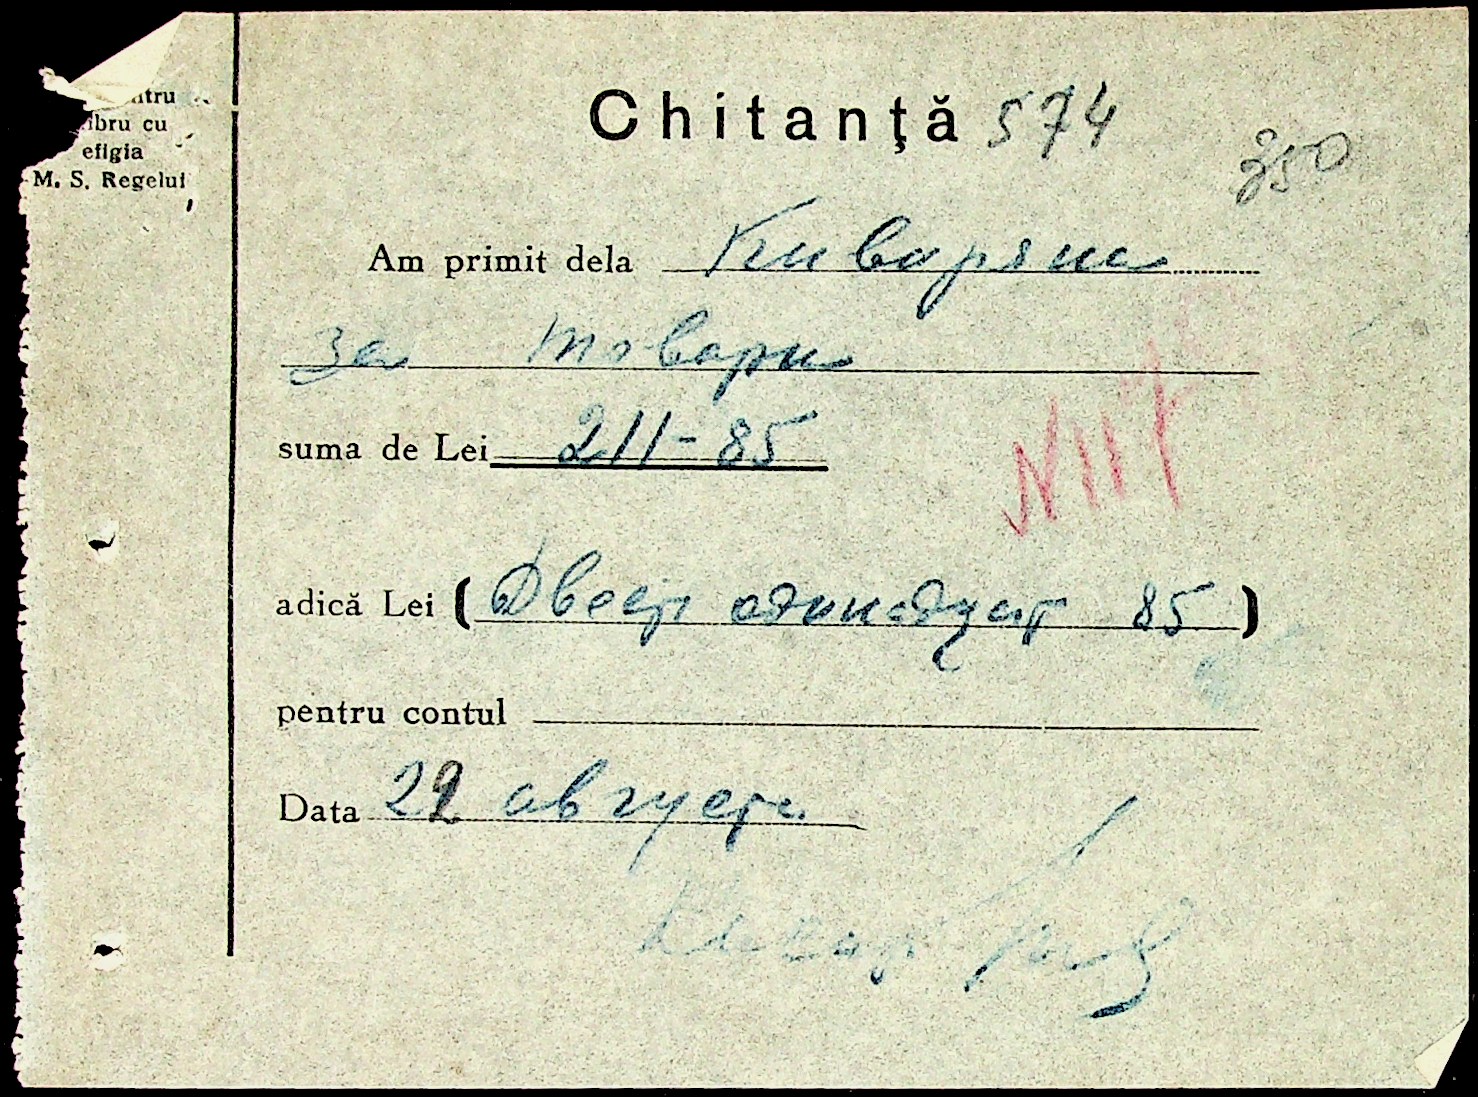 ntru
mbru cu
efigia
M. S. Regelui
Chitanță 574
250
Am primit dela
за товары
suma de Lei 211-85
N 117
adică Lei (Двест одинадцат 85)
pentru contul
Data 22 августа